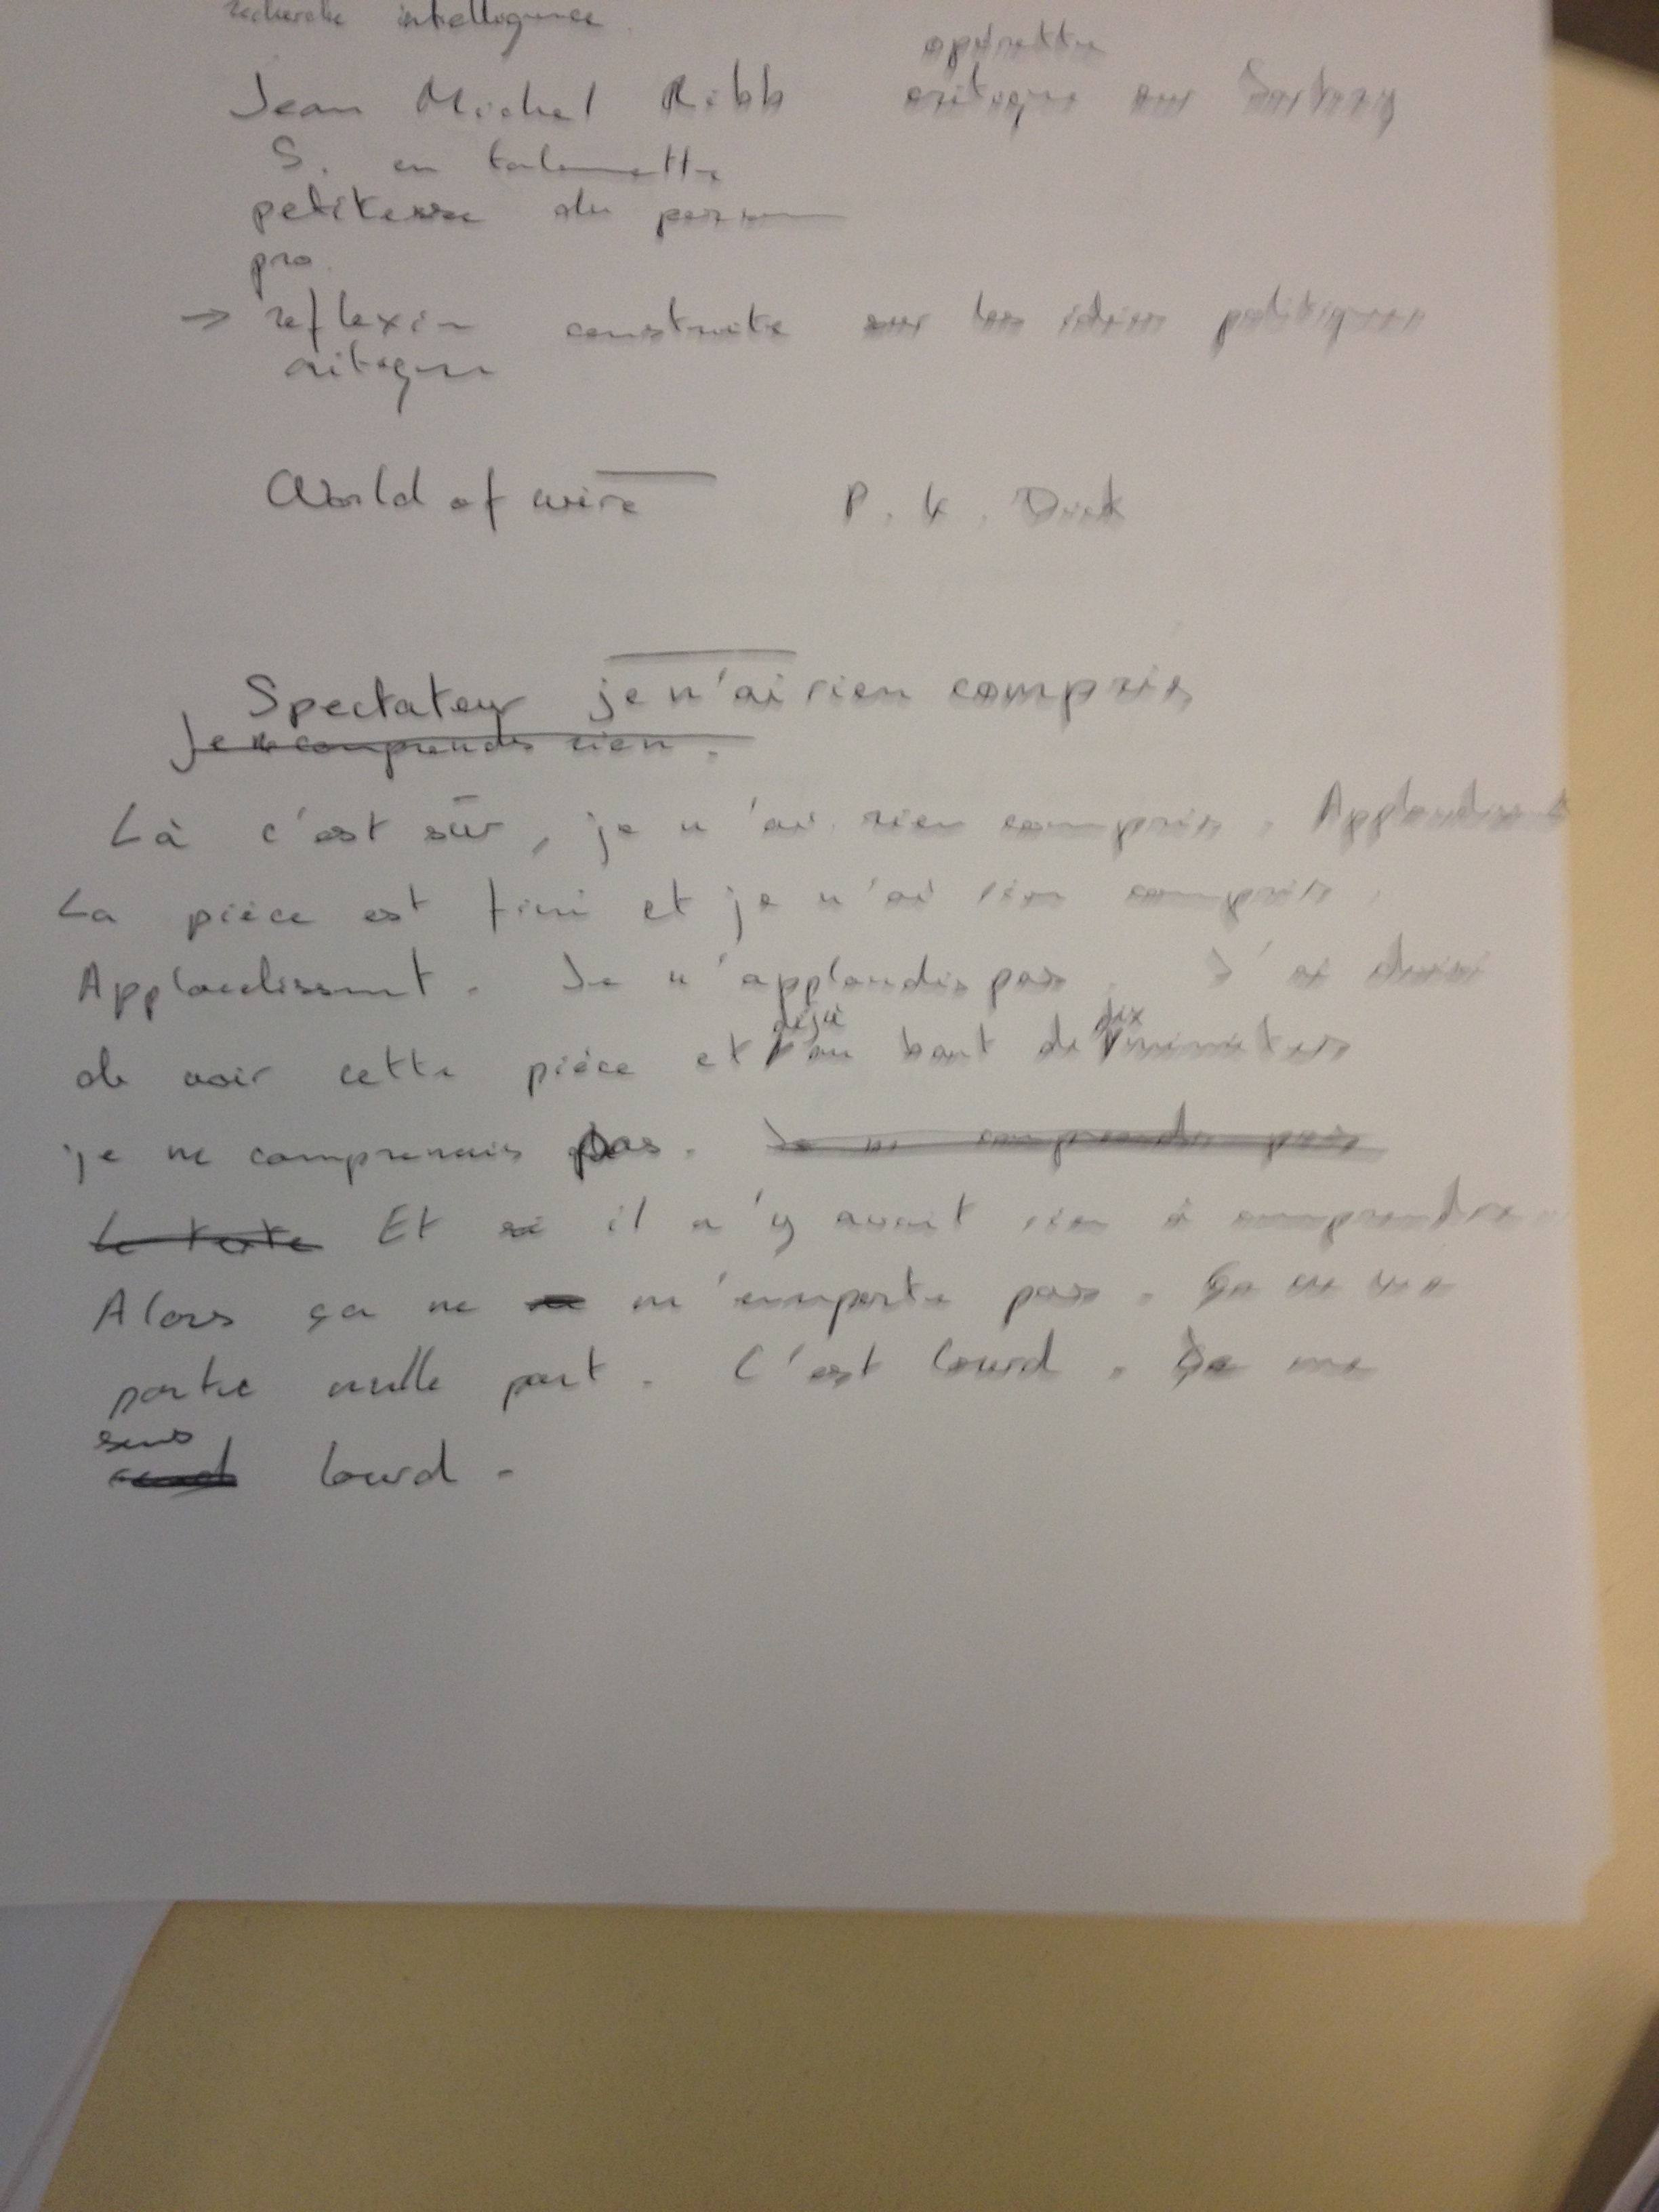 recherche intelligence
opérette
Jean Michel Ribb critique sur Sarkozy
S. en talonnette
petitesse du person
pro.
→ reflexion construite sur les idées politiques
critique
World of wire P. K. Dick
Spectateur je n'ai rien compris
Je ne comprends rien.
Là c'est sûr, je n'ai rien compris. Applaudissent
La pièce est fini et je n'ai rien compris.
Applaudissent. Je n'applaudis pas. J'ai choisi
déjà dix
de voir cette pièce et au bout de minutes
je ne comprenais pas. Je ne comprends pas
le texte Et si il n'y avait rien à comprendre
Alors ça ne m'emporte pas. Ça ne me
porte nulle part. C'est lourd. Je me
sens
lourd.